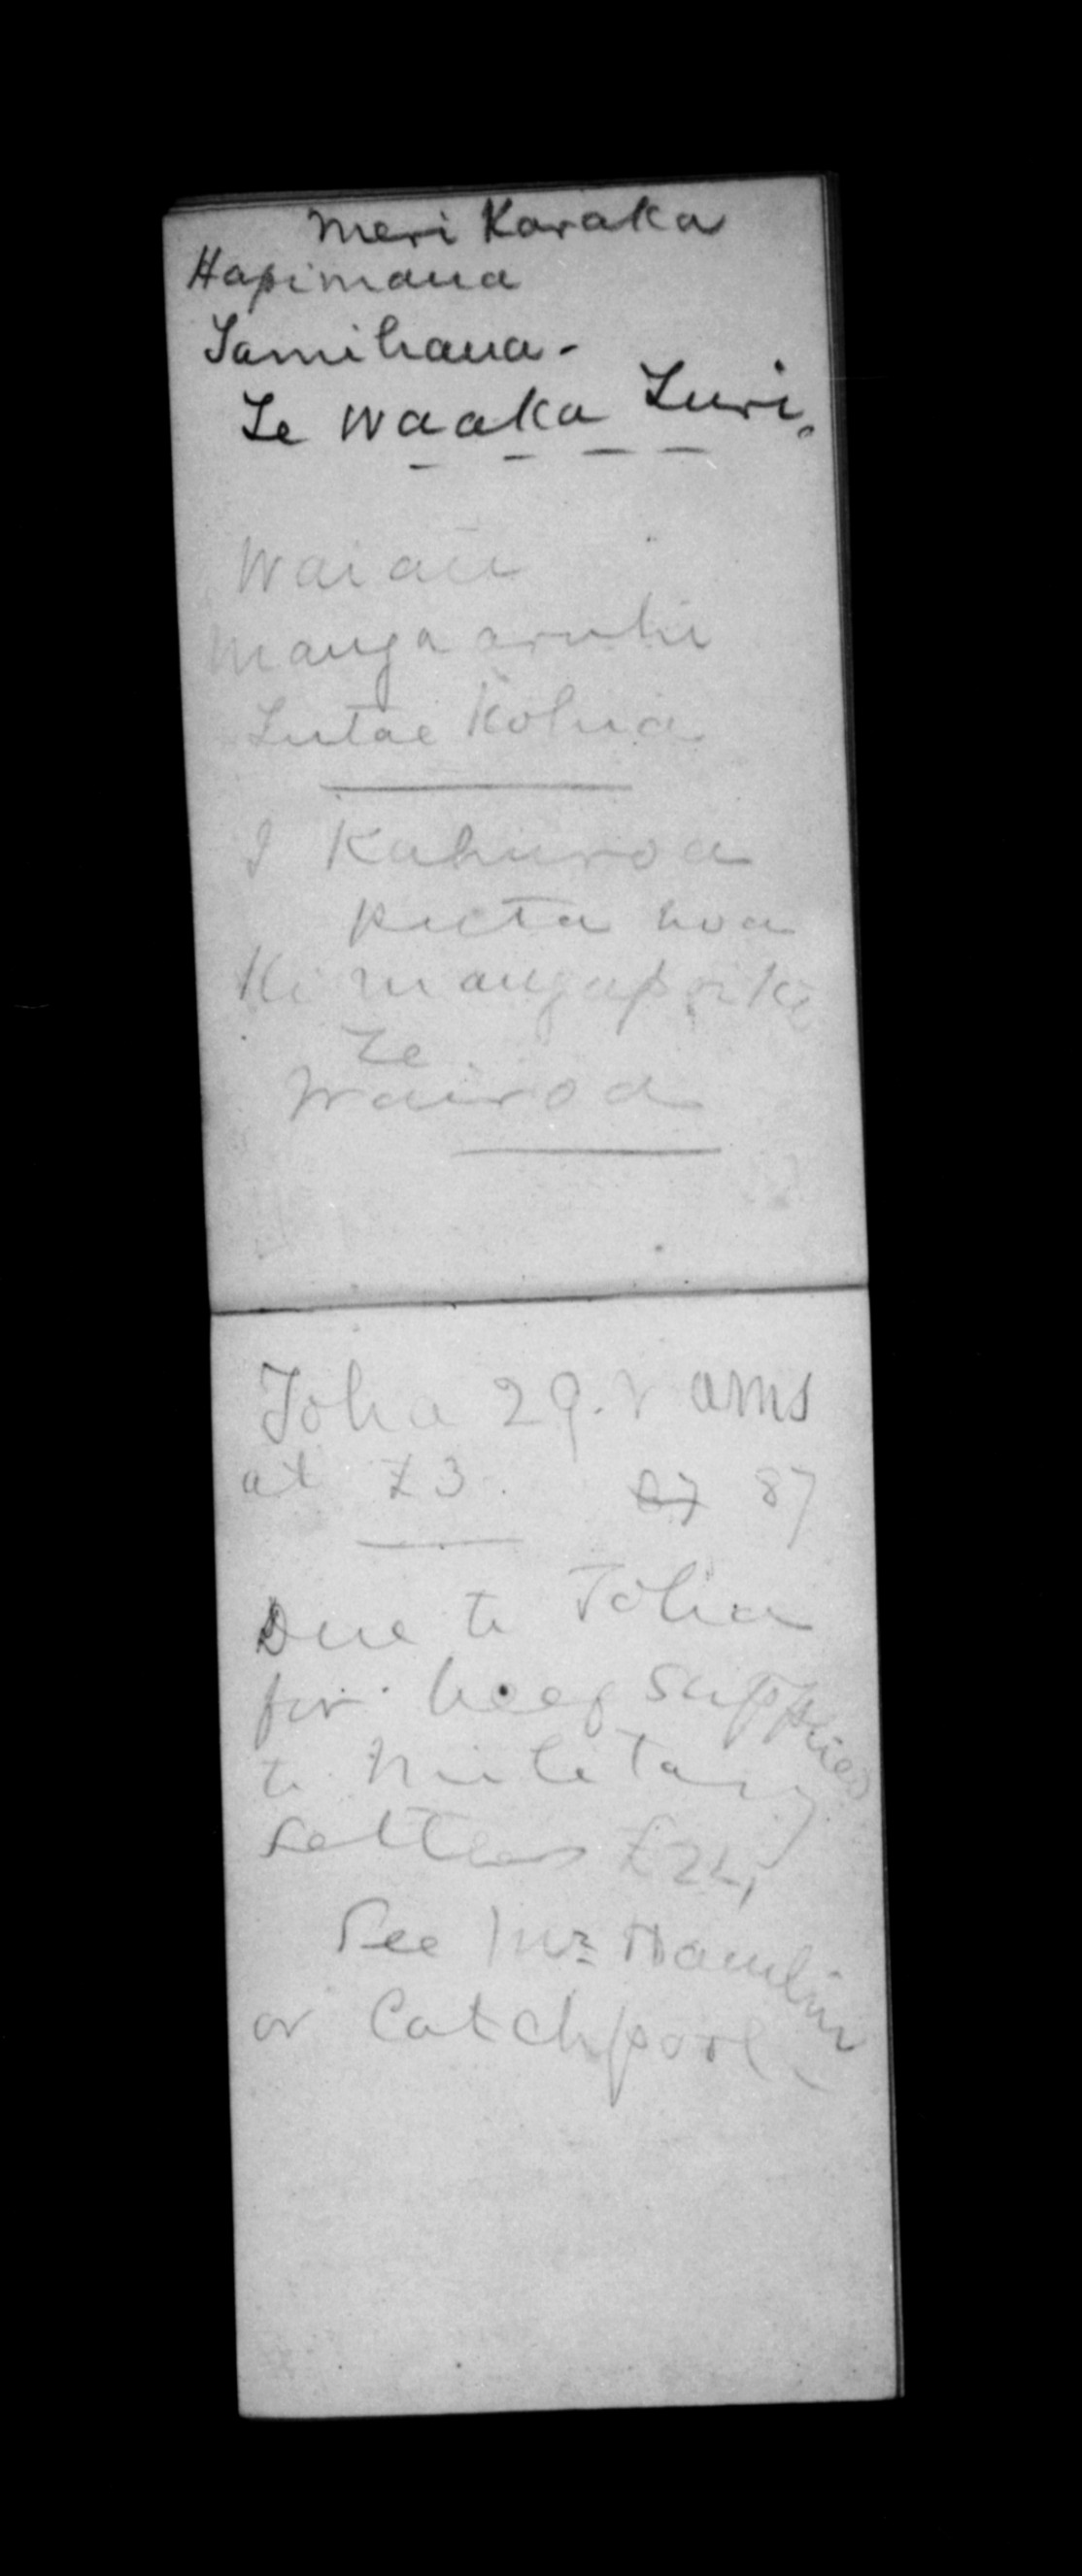 Meri Karaka
Hapimana
Tamihana -
Te Waaka Turi.
Waiau
Mangaaruhe
Tutae Kohua
I Kahuroa
puta noa
Ki Mangapoike
Te
Wairoa
Toha 29. rams
at £3. 87 87
Due to Toha
for beef supplies
to Military
settlers £24,
See Mr Hamlin
or Catchpool -